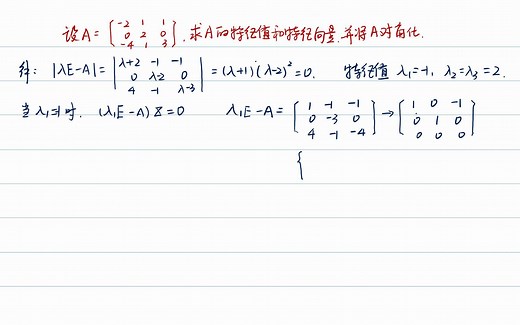 设A = [ -2 1 1 ; 0 2 0 ; -4 1 3 ], 求A的特征值和特征向量, 并将A对角化.
解: |λE-A| = | λ+2 -1 -1 ; 0 λ-2 0 ; 4 -1 λ-3 | = (λ+1)(λ-2)² = 0. 特征值 λ₁=-1, λ₂=λ₃=2.
当λ₁=-1时. (λ₁E-A)X=0 λ₁E-A = [ 1 -1 -1 ; 0 -3 0 ; 4 -1 -4 ] → [ 1 0 -1 ; 0 1 0 ; 0 0 0 ]
{